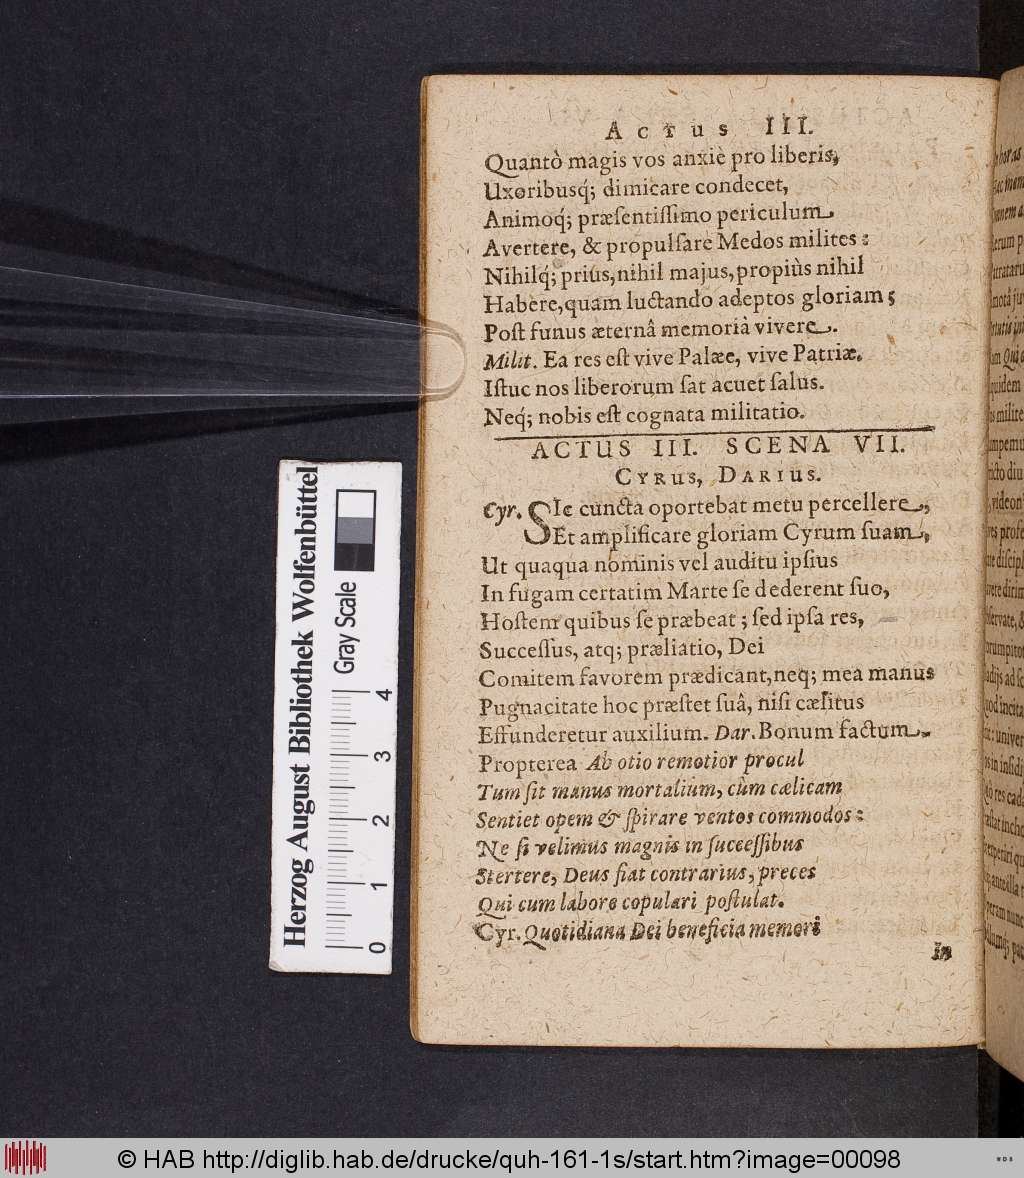 Actus III.
Quantò magis vos anxiè pro liberis,
Uxoribusq́; dimicare condecet,
Animoq́; præsentissimo periculum
Avertere, & propulsare Medos milites:
Nihilq́; prius, nihil majus, propiùs nihil
Habere, quam luctando adeptos gloriam;
Post funus æternâ memoriâ vivere.
Milit. Ea res est vive Palæe, vive Patriæ.
Istuc nos liberorum sat acuet salus.
Neq́; nobis est cognata militatio.
ACTUS III. SCENA VII.
Cyrus, Darius.
Cyr. SIc cuncta oportebat metu percellere,
Et amplificare gloriam Cyrum suam,
Ut quaqua nominis vel auditu ipsius
In fugam certatim Marte se dederent suo,
Hostem quibus se præbeat; sed ipsa res,
Successus, atq; præliatio, Dei
Comitem favorem prædicant, neq; mea manus
Pugnacitate hoc præstet suâ, nisi cælitus
Effunderetur auxilium. Dar. Bonum factum.
Propterea Ab otio remotior procul
Tum sit manus mortalium, cùm cælicam
Sentiet opem & spirare ventos commodos:
Ne si velimus magnis in successibus
Stertere, Deus fiat contrarius, preces
Qui cum labore copulari postulat.
Cyr. Quotidiana Dei beneficia memori
In
Herzog August Bibliothek Wolfenbüttel
Gray Scale
0 1 2 3 4
© HAB http://diglib.hab.de/drucke/quh-161-1s/start.htm?image=00098